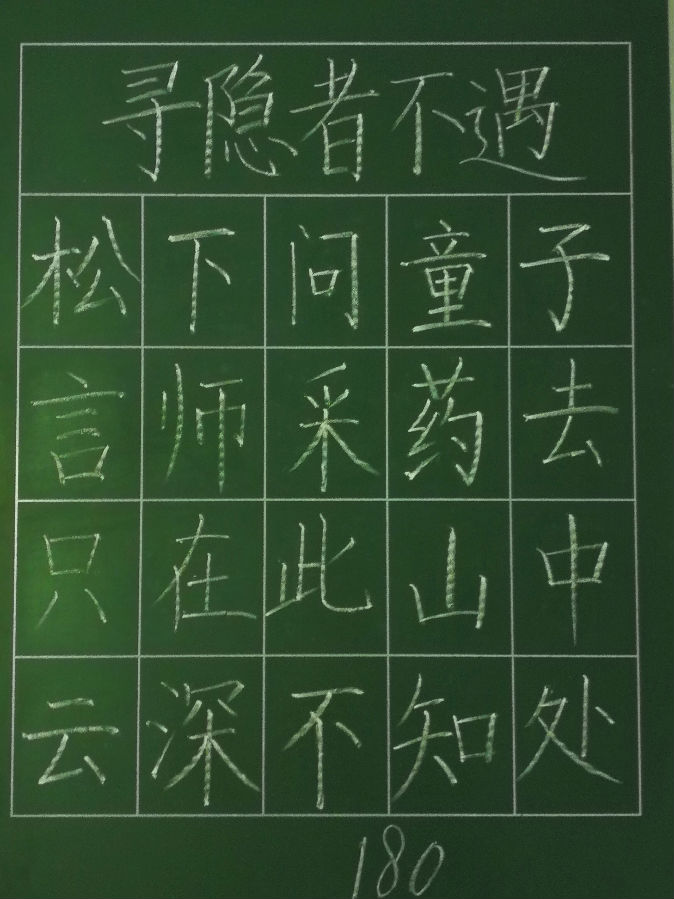 寻隐者不遇
松下问童子
言师采药去
只在此山中
云深不知处
180